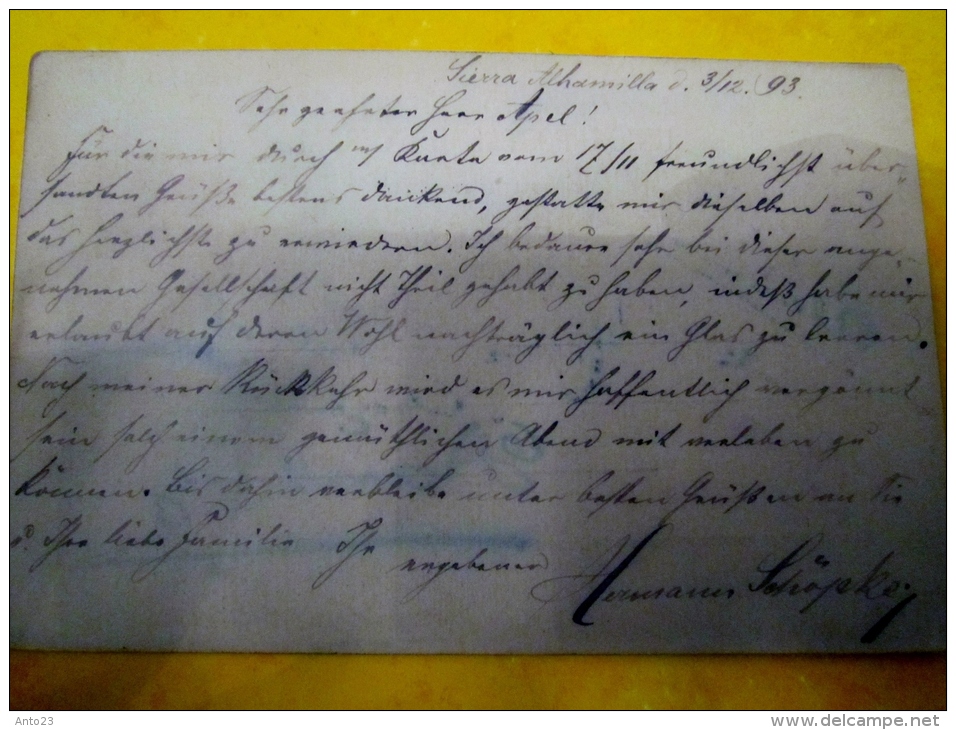 Sierra Alhamilla d. 3/12. 93.
Sehr geehrter Herr Apel!
Für die mir durch Karte vom 17/11 freundlichst über-
sandten Grüße bestens dankend, gestatte mir dieselben auf
das herzlichste zu erwiedern. Ich bedaure sehr bei dieser ange-
nehmen Gesellschaft nicht Theil gehabt zu haben, indeß habe mir
erlaubt auf deren Wohl nachträglich ein Glas zu leeren.
Nach meiner Rückkehr wird es mir hoffentlich vergönnt
sein solch einem gemüthlichen Abend mit verleben zu
können. Bis dahin verbleibe unter besten Grüßen an Sie
u. Ihre liebe Familie Ihr
ergebener Hermann Schöpke
Anto23
www.delcampe.net